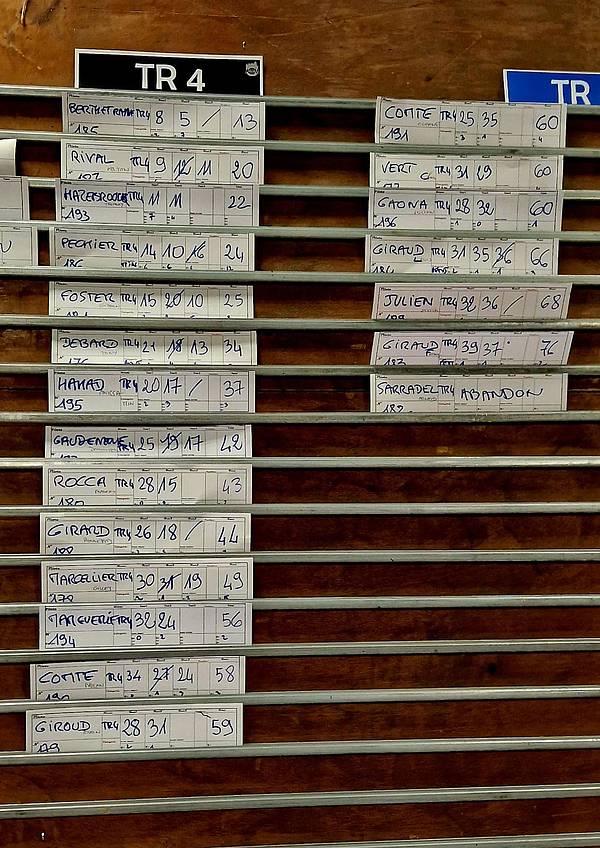 TR 4
TR
BERTHET TR4 8 5 / 13
185
RIVAL TR4 9 12 11 20
TR4 11 11 22
193
PECHIER TR4 14 10 16 24
186
FOSTER TR4 15 20 10 25
DEBARD TR4 21 18 13 34
HAMAD TR4 20 17 / 37
195
TR4 25 19 17 42
ROCCA TR4 28 15 43
180
GIRARD TR4 26 18 / 44
188
MARCELLIER TR4 30 31 19 49
178
TR4 32 24 56
194
COMTE TR4 34 27 24 58
190
GIROUD TR4 28 31 59
COMTE TR4 25 35 60
191
VERT TR4 31 29 60
GAONA TR4 28 32 60
196
GIRAUD TR4 31 35 36 66
JULIEN TR4 32 36 / 68
GIRAUD TR4 39 37 76
SARRADEL TR4 ABANDON